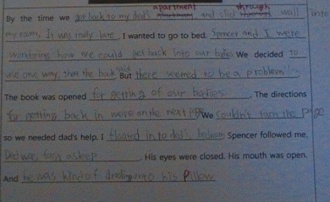 apartment through
By the time we got back to my dad's and slid wall into
my room, it was really late. I wanted to go to bed. Spencer and I were
wondering how we could get back into our bodies. We decided to
use one way, then the book said But there seemed to be a problem
The book was opened for getting of our bodies. The directions
for getting back in were on the next page We couldn't turn the page
so we needed dad's help. I floated in to dad's bedroom Spencer followed me.
Dad was fast asleep. His eyes were closed. His mouth was open.
And he was kind of drooling into his Pillow